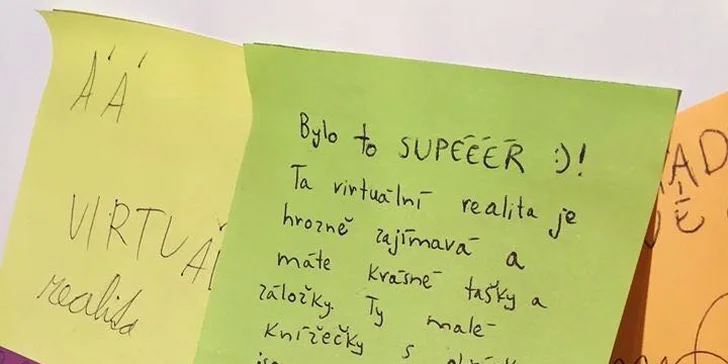 ÁÁ
VIRTUÁ
realita
Bylo to SUPÉÉÉR :)!
Ta virtuální realita je
hrozně zajímavá a
máte krásné tašky a
záložky. Ty malé
knížečky s